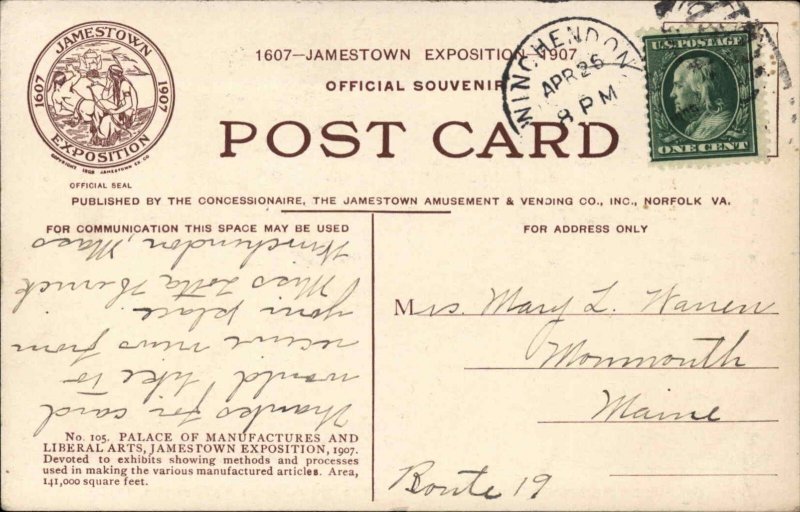 JAMESTOWN
1607 1907
EXPOSITION
COPYRIGHT 1905 JAMESTOWN EX. CO.
OFFICIAL SEAL
1607—JAMESTOWN EXPOSITION—1907
OFFICIAL SOUVENIR
POST CARD
WINCHENDON
APR 26
8 PM
U.S. POSTAGE
ONE CENT
PUBLISHED BY THE CONCESSIONAIRE, THE JAMESTOWN AMUSEMENT & VENDING CO., INC., NORFOLK VA.
FOR COMMUNICATION THIS SPACE MAY BE USED
Thanks for card
would like to
receive news from
your place.
Miss Lotta Herrick
Winchendon, Mass
No. 105. PALACE OF MANUFACTURES AND
LIBERAL ARTS, JAMESTOWN EXPOSITION, 1907.
Devoted to exhibits showing methods and processes
used in making the various manufactured articles. Area,
141,000 square feet.
FOR ADDRESS ONLY
Mrs. Mary L. Warren
Monmouth
Maine
Route 19